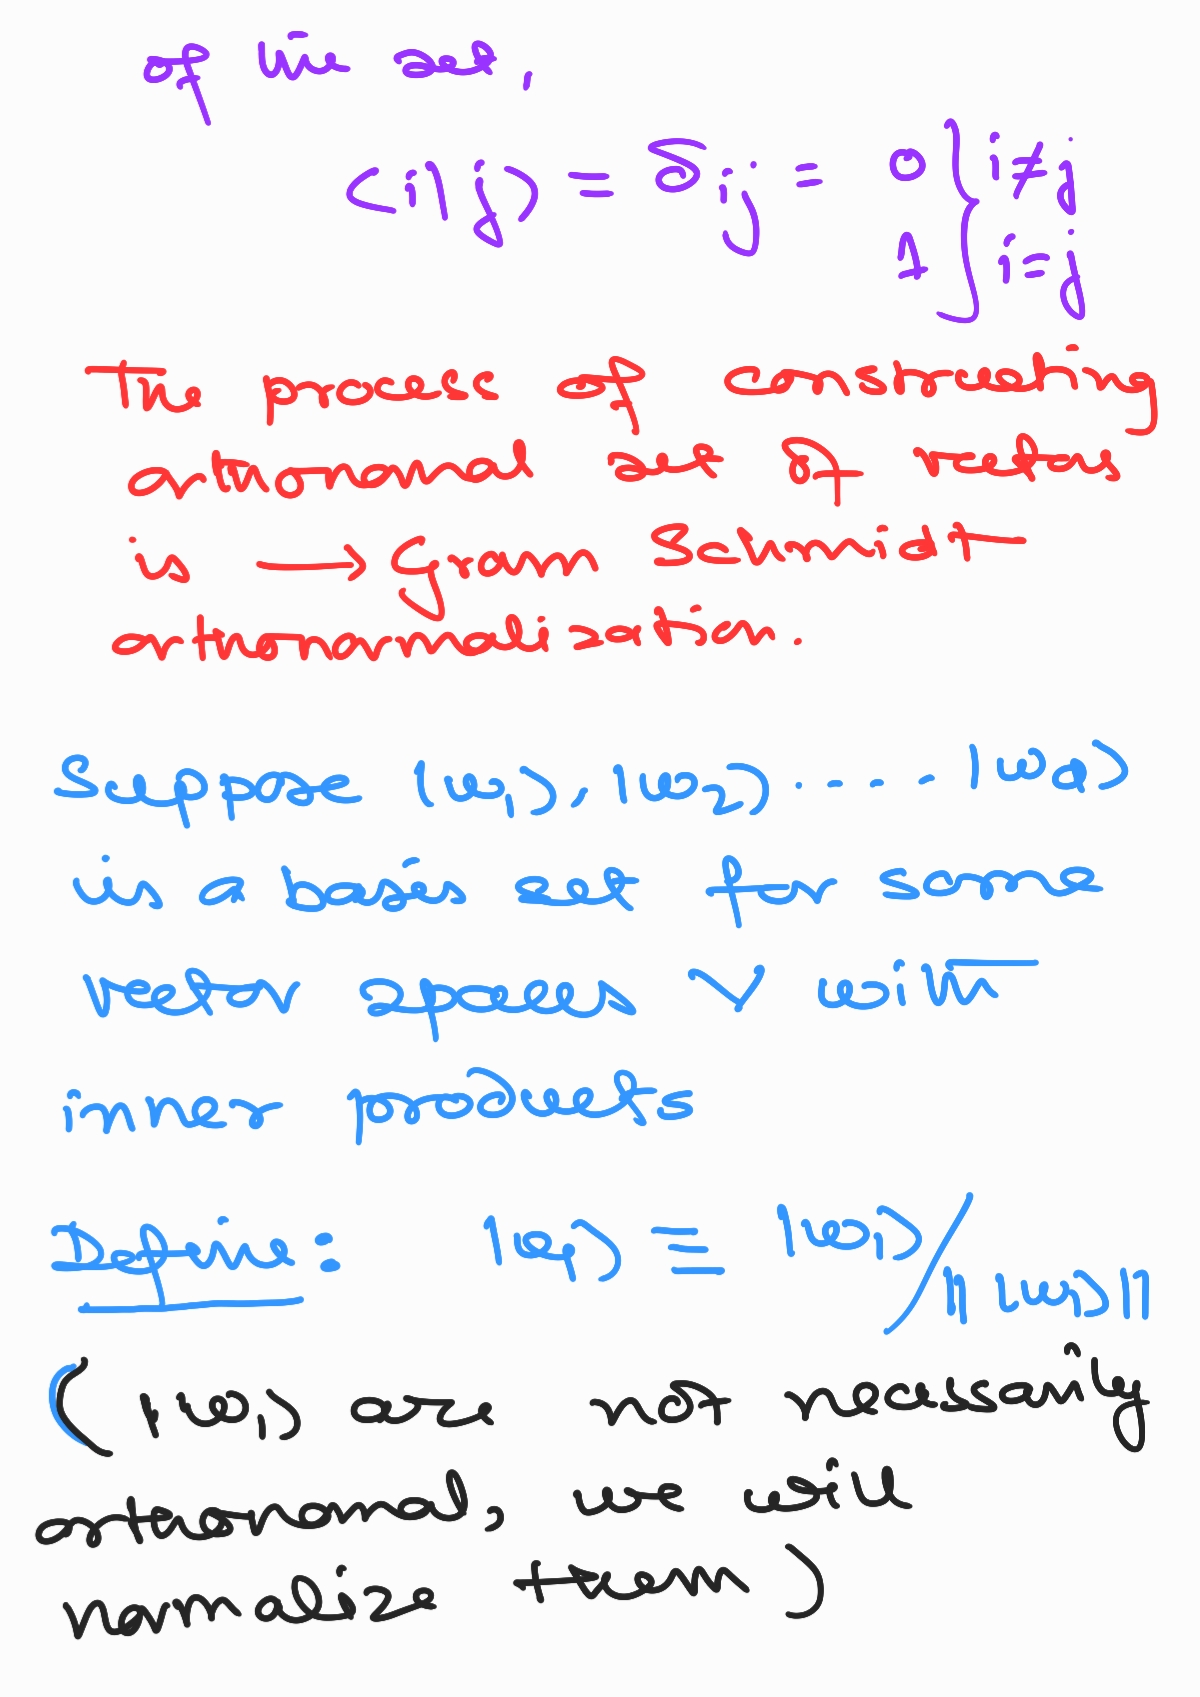 of the set,
⟨i|j⟩ = δij = 0 } i≠j
1 } i=j
The process of constructing
orthonomal set of vectors
is → Gram Schmidt
orthonormalization.
Suppose |w1⟩, |w2⟩ ..... |wd⟩
is a basis set for some
vector spaces V with
inner products
Define: |v1⟩ ≡ |w1⟩ / || |w1⟩ ||
( |w1⟩ are not necessarily
orthonomal, we will
normalize them )